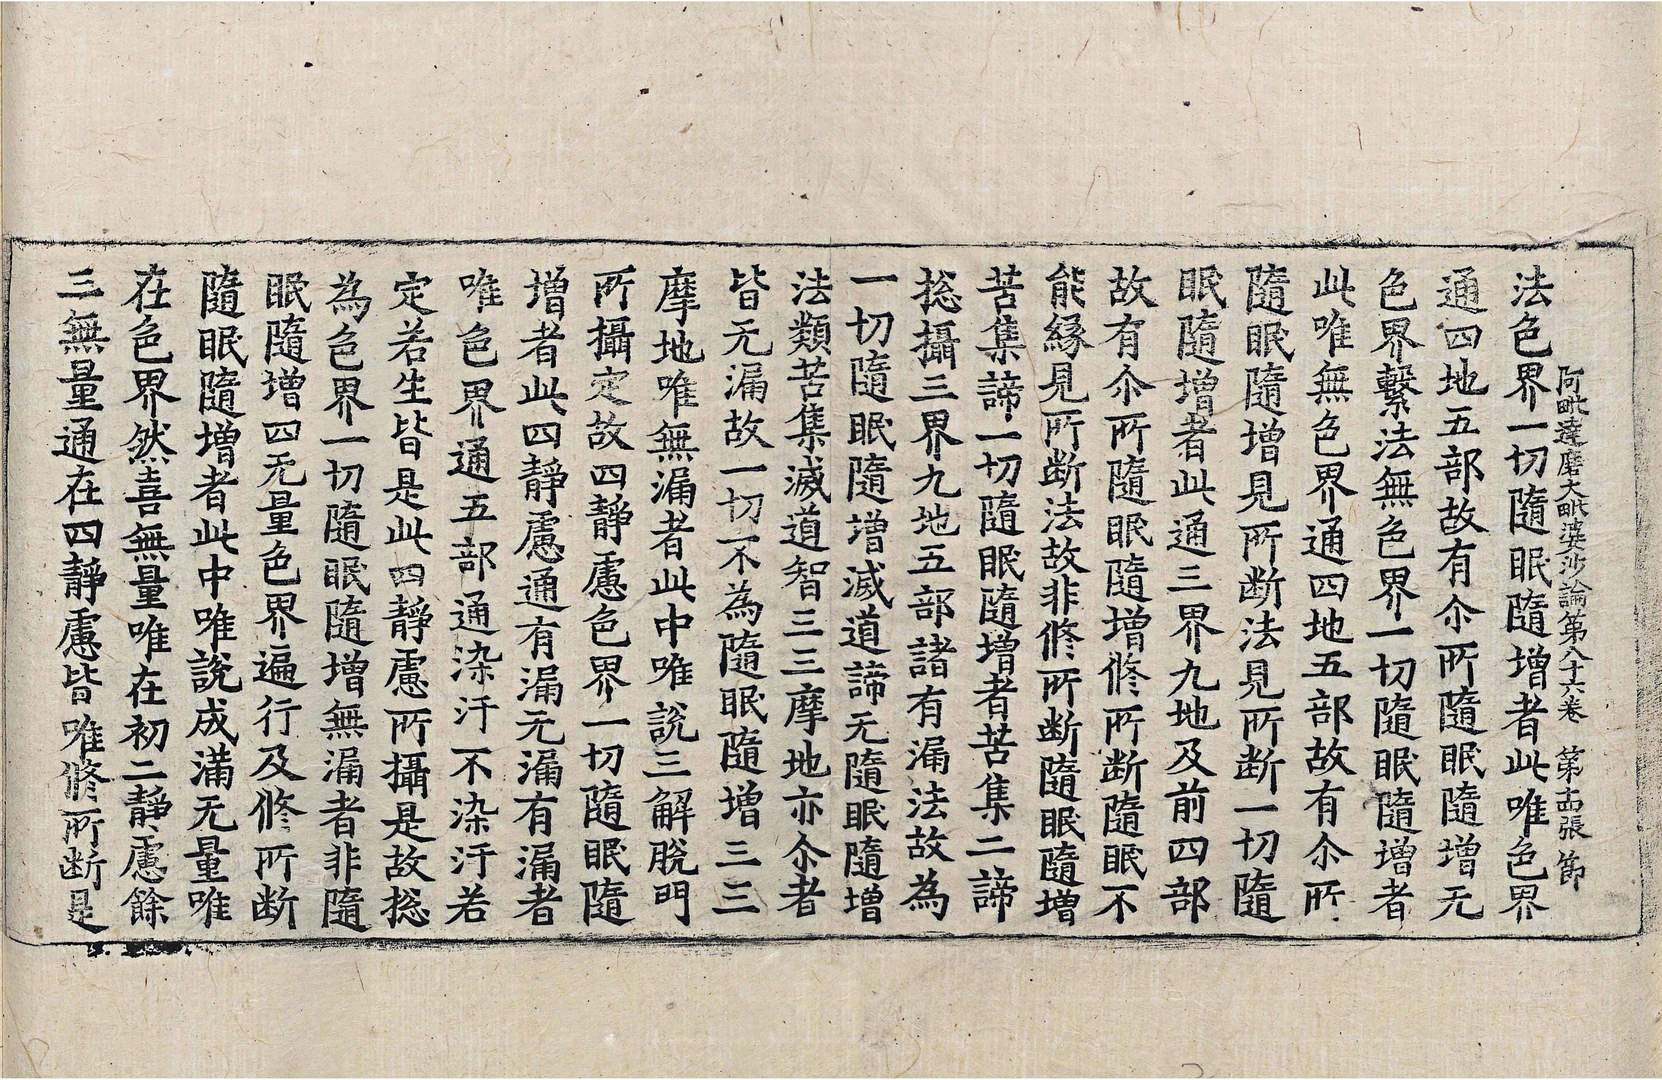 阿毗達磨大毗婆沙論第八十六卷　第十四張　節
法色界一切隨眠隨增者此唯色界
通四地五部故有尒所隨眠隨增无
色界繫法無色界一切隨眠隨增者
此唯無色界通四地五部故有尒所
隨眠隨增見所断法見所断一切隨
眠隨增者此通三界九地及前四部
故有尒所隨眠隨增修所断隨眠不
能緣見所断法故非修所断隨眠隨增
苦集諦一切隨眠隨增者苦集二諦
揔攝三界九地五部諸有漏法故為
一切隨眠隨增滅道諦无隨眠隨增
法類苦集滅道智三三摩地亦尒者
皆无漏故一切不為隨眠隨增三三
摩地唯無漏者此中唯說三解脫門
所攝定故四靜慮色界一切隨眠隨
增者此四靜慮通有漏无漏有漏者
唯色界通五部通染汙不染汙若
定若生皆是此四靜慮所攝是故揔
為色界一切隨眠隨增無漏者非隨
眠隨增四无量色界遍行及修所断
隨眠隨增者此中唯說成滿无量唯
在色界然喜無量唯在初二靜慮餘
三無量通在四靜慮皆唯修所断是